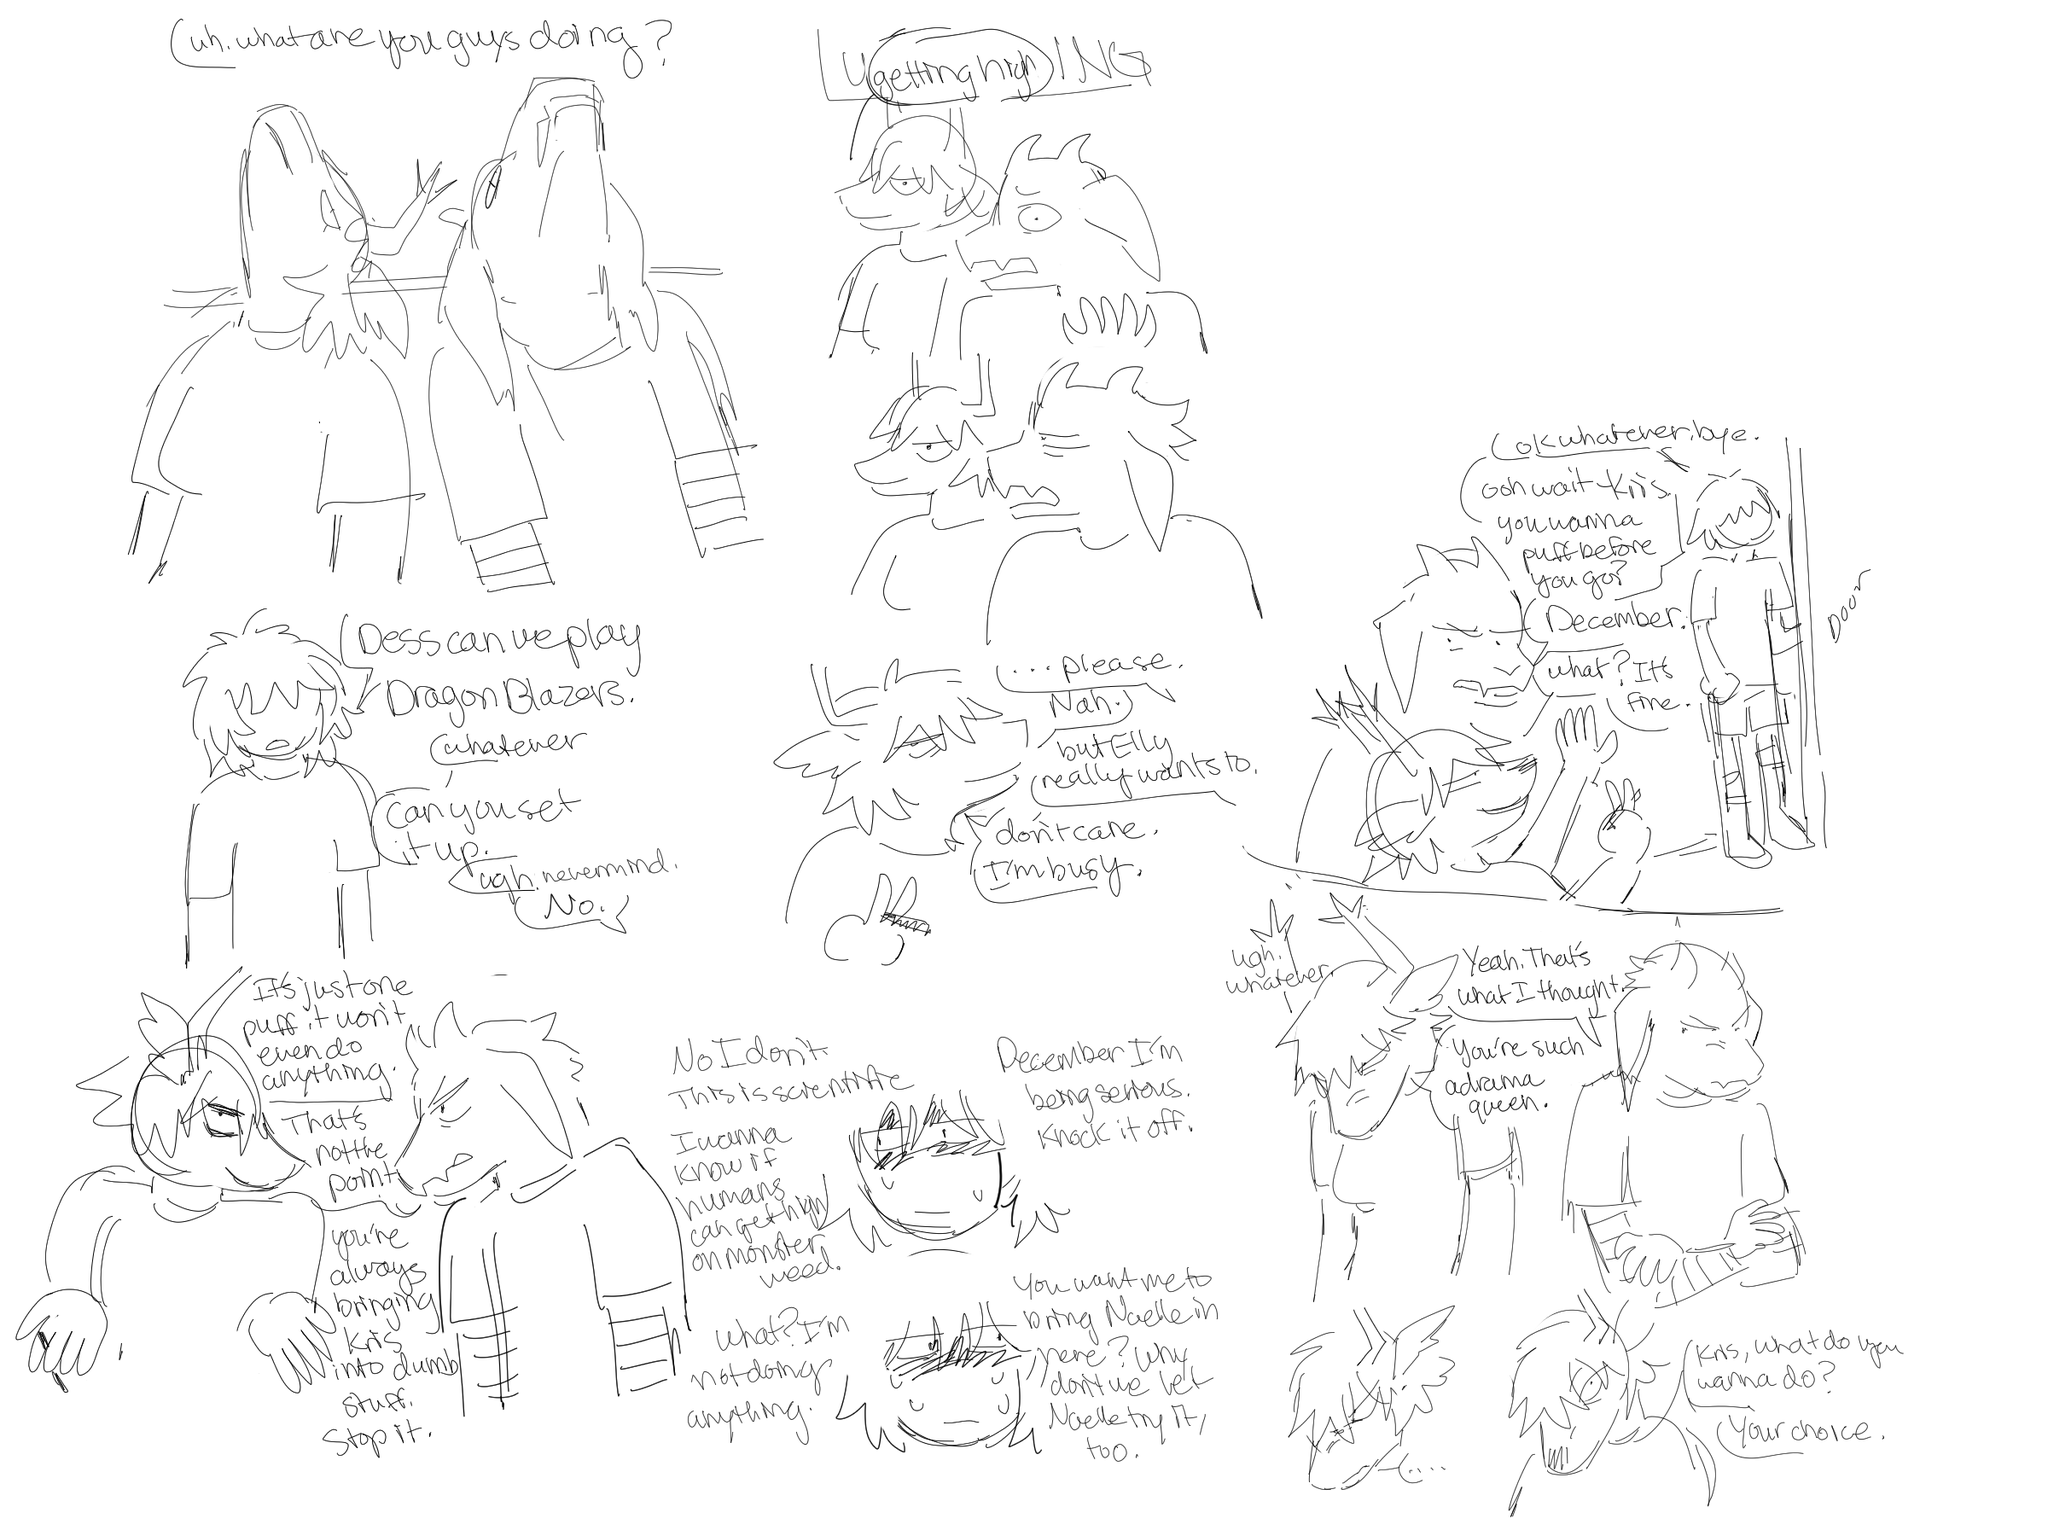 uh. what are you guys doing?
getting high
ING
Dess can we play
Dragon Blazers.
whatever
Can you set
it up.
ugh. nevermind.
No.
...please.
Nah.
but Elly
really wants to.
don't care.
I'm busy.
ok whatever. bye.
ooh wait - Kris.
you wanna
puff before
you go?
December.
what? It's
fine.
DOOR
It's just one
puff. it won't
even do
anything.
That's
not the
point.
you're
always
bringing
Kris
into dumb
stuff.
Stop it.
No I don't
This is scientific
I wanna
know if
humans
can get high
on monster
weed.
December I'm
being serious.
Knock it off.
what? I'm
not doing
anything.
You want me to
bring Noelle in
here? Why
don't we let
Noelle try it,
too.
ugh.
whatever.
Yeah. That's
what I thought.
You're such
a drama
queen.
....
Kris, what do you
wanna do?
Your choice.